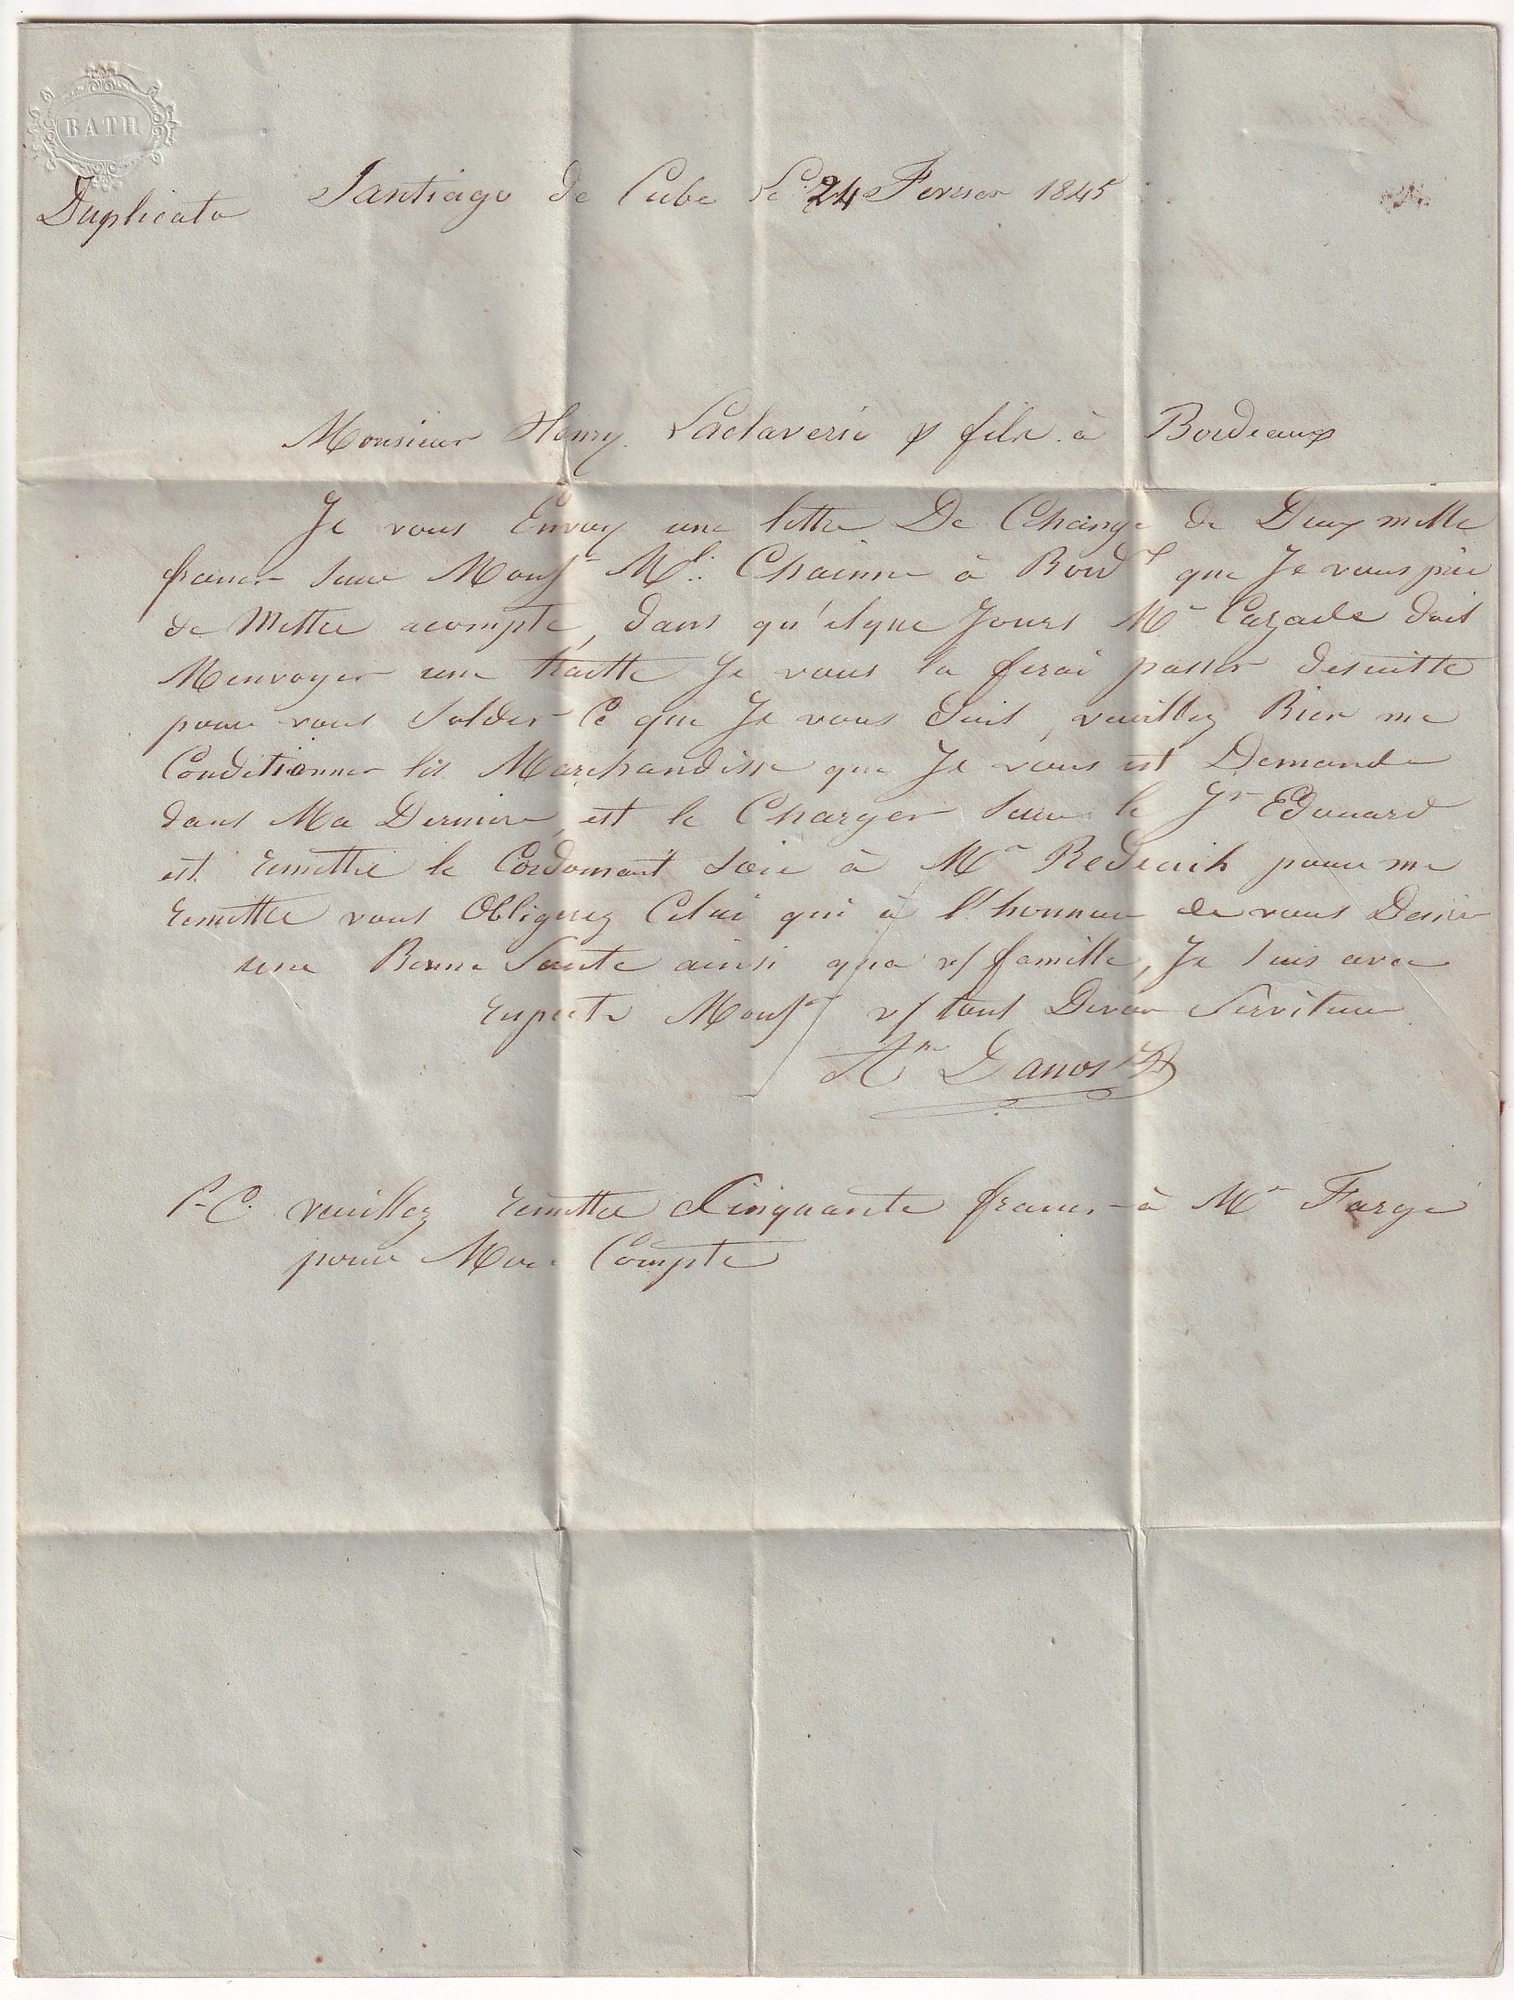 BATH
Duplicata Santiago de Cube Le 24 Fevrier 1845
Monsieur Henry Laclaverie & fils à Bordeaux
Je vous Envoy une lettre De Change de Deux mille
francs sur Monsr Ml. Chainne à Bordx que Je vous prie
de Mettre acompte, dans qu'elque Jours Mr Cazade doit
Menvoyer une traitte Je vous la ferai passer desuitte
pour vous Solder Ce que Je vous Doit, veuillez Bien me
Conditionner les Marchandise que Je vous est Demande
dans Ma Derniere, est le Charger sur le Jn Edouard
est remettre le Soie à Mr pour me
remettre vous Obligerez Celui qui à l'honneur de vous Desire
une Bonne Sante ainsi qua v/ famille, Je suis avec
respects Monsr v/ tout Devou Serviteur
Am Danos
P.C. veuillez remettre Cinquante francs à Mr Farge
pour Mon Compte